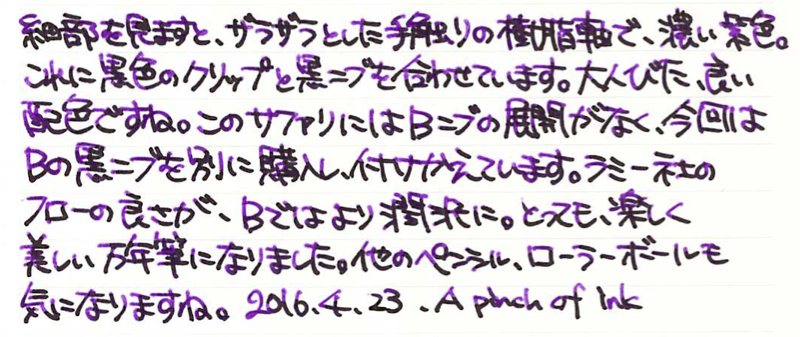 細部を見ますと、ザラザラとした手触りの樹脂軸で、濃い紫色。
これに黒色のクリップと黒ニブを合わせています。大人びた、良い
配色ですね。このサファリにはBニブの展開がなく、今回は
Bの黒ニブを別に購入し、付けかえています。ラミー社の
フローの良さが、Bではより潤沢に。とっても、楽しく
美しい万年筆になりました。他のペンシル、ローラーボールも
気になりますね。2016.4.23 . A pinch of Ink